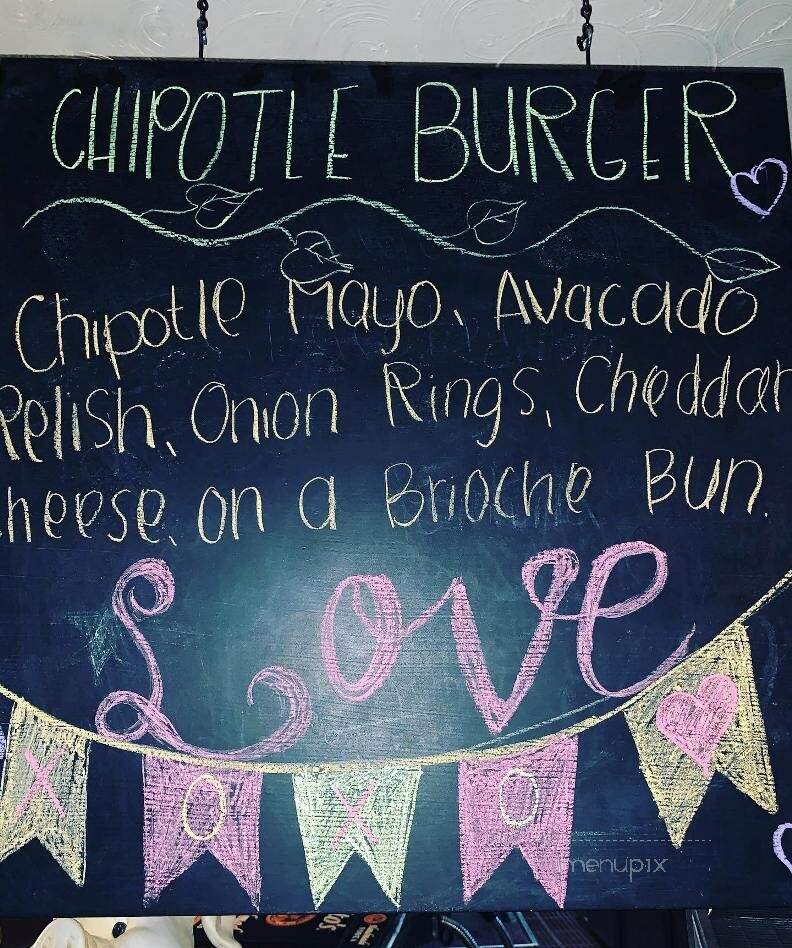 CHIPOTLE BURGER
Chipotle Mayo, Avacado
Relish, Onion Rings, Cheddar
heese, on a Brioche Bun.
Love
X O X O
menupix